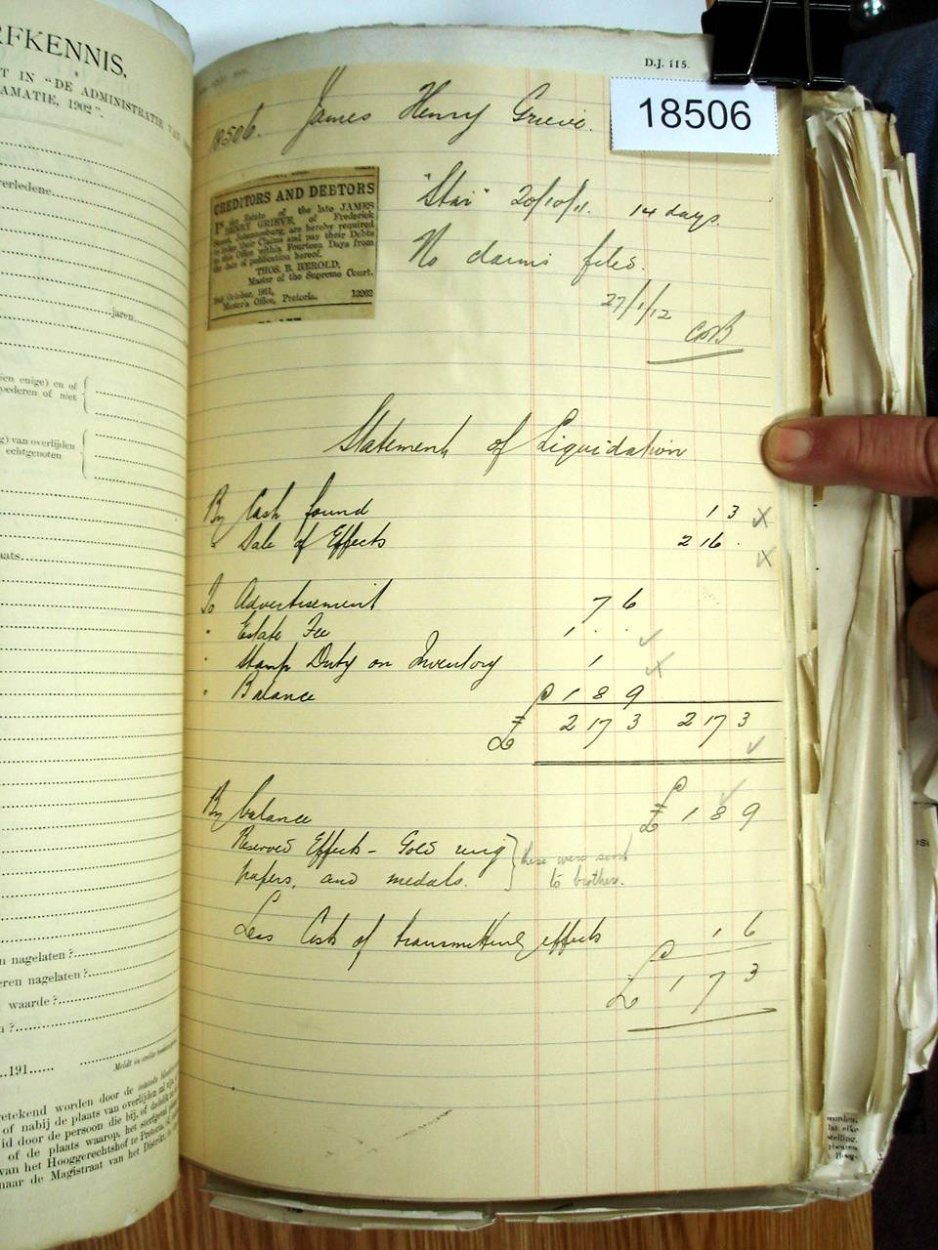 RFKENNIS.
T IN "DE ADMINISTRATIE
AMATIE, 1902".
verledene
jaren
(een enige) en of
oederen of niet
g) van overlijden
echtgenoten
aats
n nagelaten?
eren nagelaten?
waarde?
n?
..191......
etekend worden door de
of nabij de plaats van overlijden
id door de persoon die bij, of
of de plaats waarop, het
van het Hooggerechtshof te Pretoria,
naar de Magistraat van het Distrikt
D.J. 115.
18506
18506. James Henry Grieve.
CREDITORS AND DEBTORS
In the Estate of the late JAMES
HENRY GRIEVE, of Frederick
Street, Johannesburg, are hereby required
to lodge their Claims and pay their Debts
at this Office within Fourteen Days from
the date of publication hereof.
THOS. B. HEROLD,
Master of the Supreme Court.
October, 1911,
Master's Office, Pretoria. 13262
"Star" 20/10/11. 14 days.
No claims files.
27/1/12
Statement of Liquidation
By Cash found 1 3
" Sale of Effects 2 16 .
To Advertisement 7 6
" Estate Fee 1 . .
" Stamp Duty on Inventory 1
" Balance £ 1 8 9
£ 2 17 3 2 17 3
By balance £ 1 8 9
Reserved Effects - Gold ring
papers, and medals.
these were sent
to brother.
Less Costs of transmitting effects 1 6
£ 1 7 3